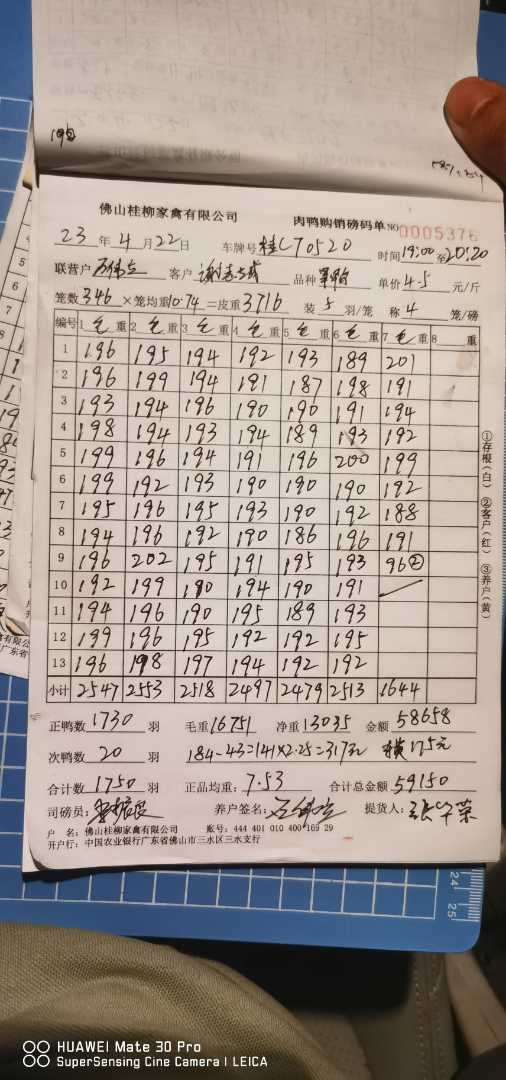 佛山桂柳家禽有限公司 肉鸭购销磅码单 NO 0005376
23年4月22日 车牌号 桂C70520 时间19:00至20:20
联营户 客户 品种 单价 4.5 元/斤
笼数 346 ×笼均重10.74=皮重3716 装 5 羽/笼 称 4 笼/磅
编号 1 毛 重 2 毛 重 3 毛 重 4 毛 重 5 毛 重 6 毛 重 7 毛 重 8 重
1 196 195 194 192 193 189 201
2 196 199 194 191 187 198 191
3 193 194 196 190 190 191 194
4 198 194 193 194 189 193 192
5 199 196 194 191 196 200 199
6 199 192 193 190 190 190 192
7 195 196 195 193 190 192 188
8 194 196 192 190 186 196 191
9 196 202 195 191 195 193 96②
10 192 199 190 194 190 191
11 194 196 190 195 189 193
12 199 196 195 192 192 195
13 196 198 197 194 192 192
小计 2547 2553 2518 2497 2479 2513 1644
正鸭数 1730 羽 毛重 16751 净重 13035 金额 58658
次鸭数 20 羽 184-43=141×2.25=317元 175元
合计数 1750 羽 正品均重: 7.53 合计总金额 59150
司磅员: 养户签名: 提货人:
户 名: 佛山桂柳家禽有限公司 账号: 444 401 010 400 169 29
开户行: 中国农业银行广东省佛山市三水区三水支行
①存根(白) ②客户(红) ③养户(黄)
24
25
HUAWEI Mate 30 Pro
SuperSensing Cine Camera | LEICA